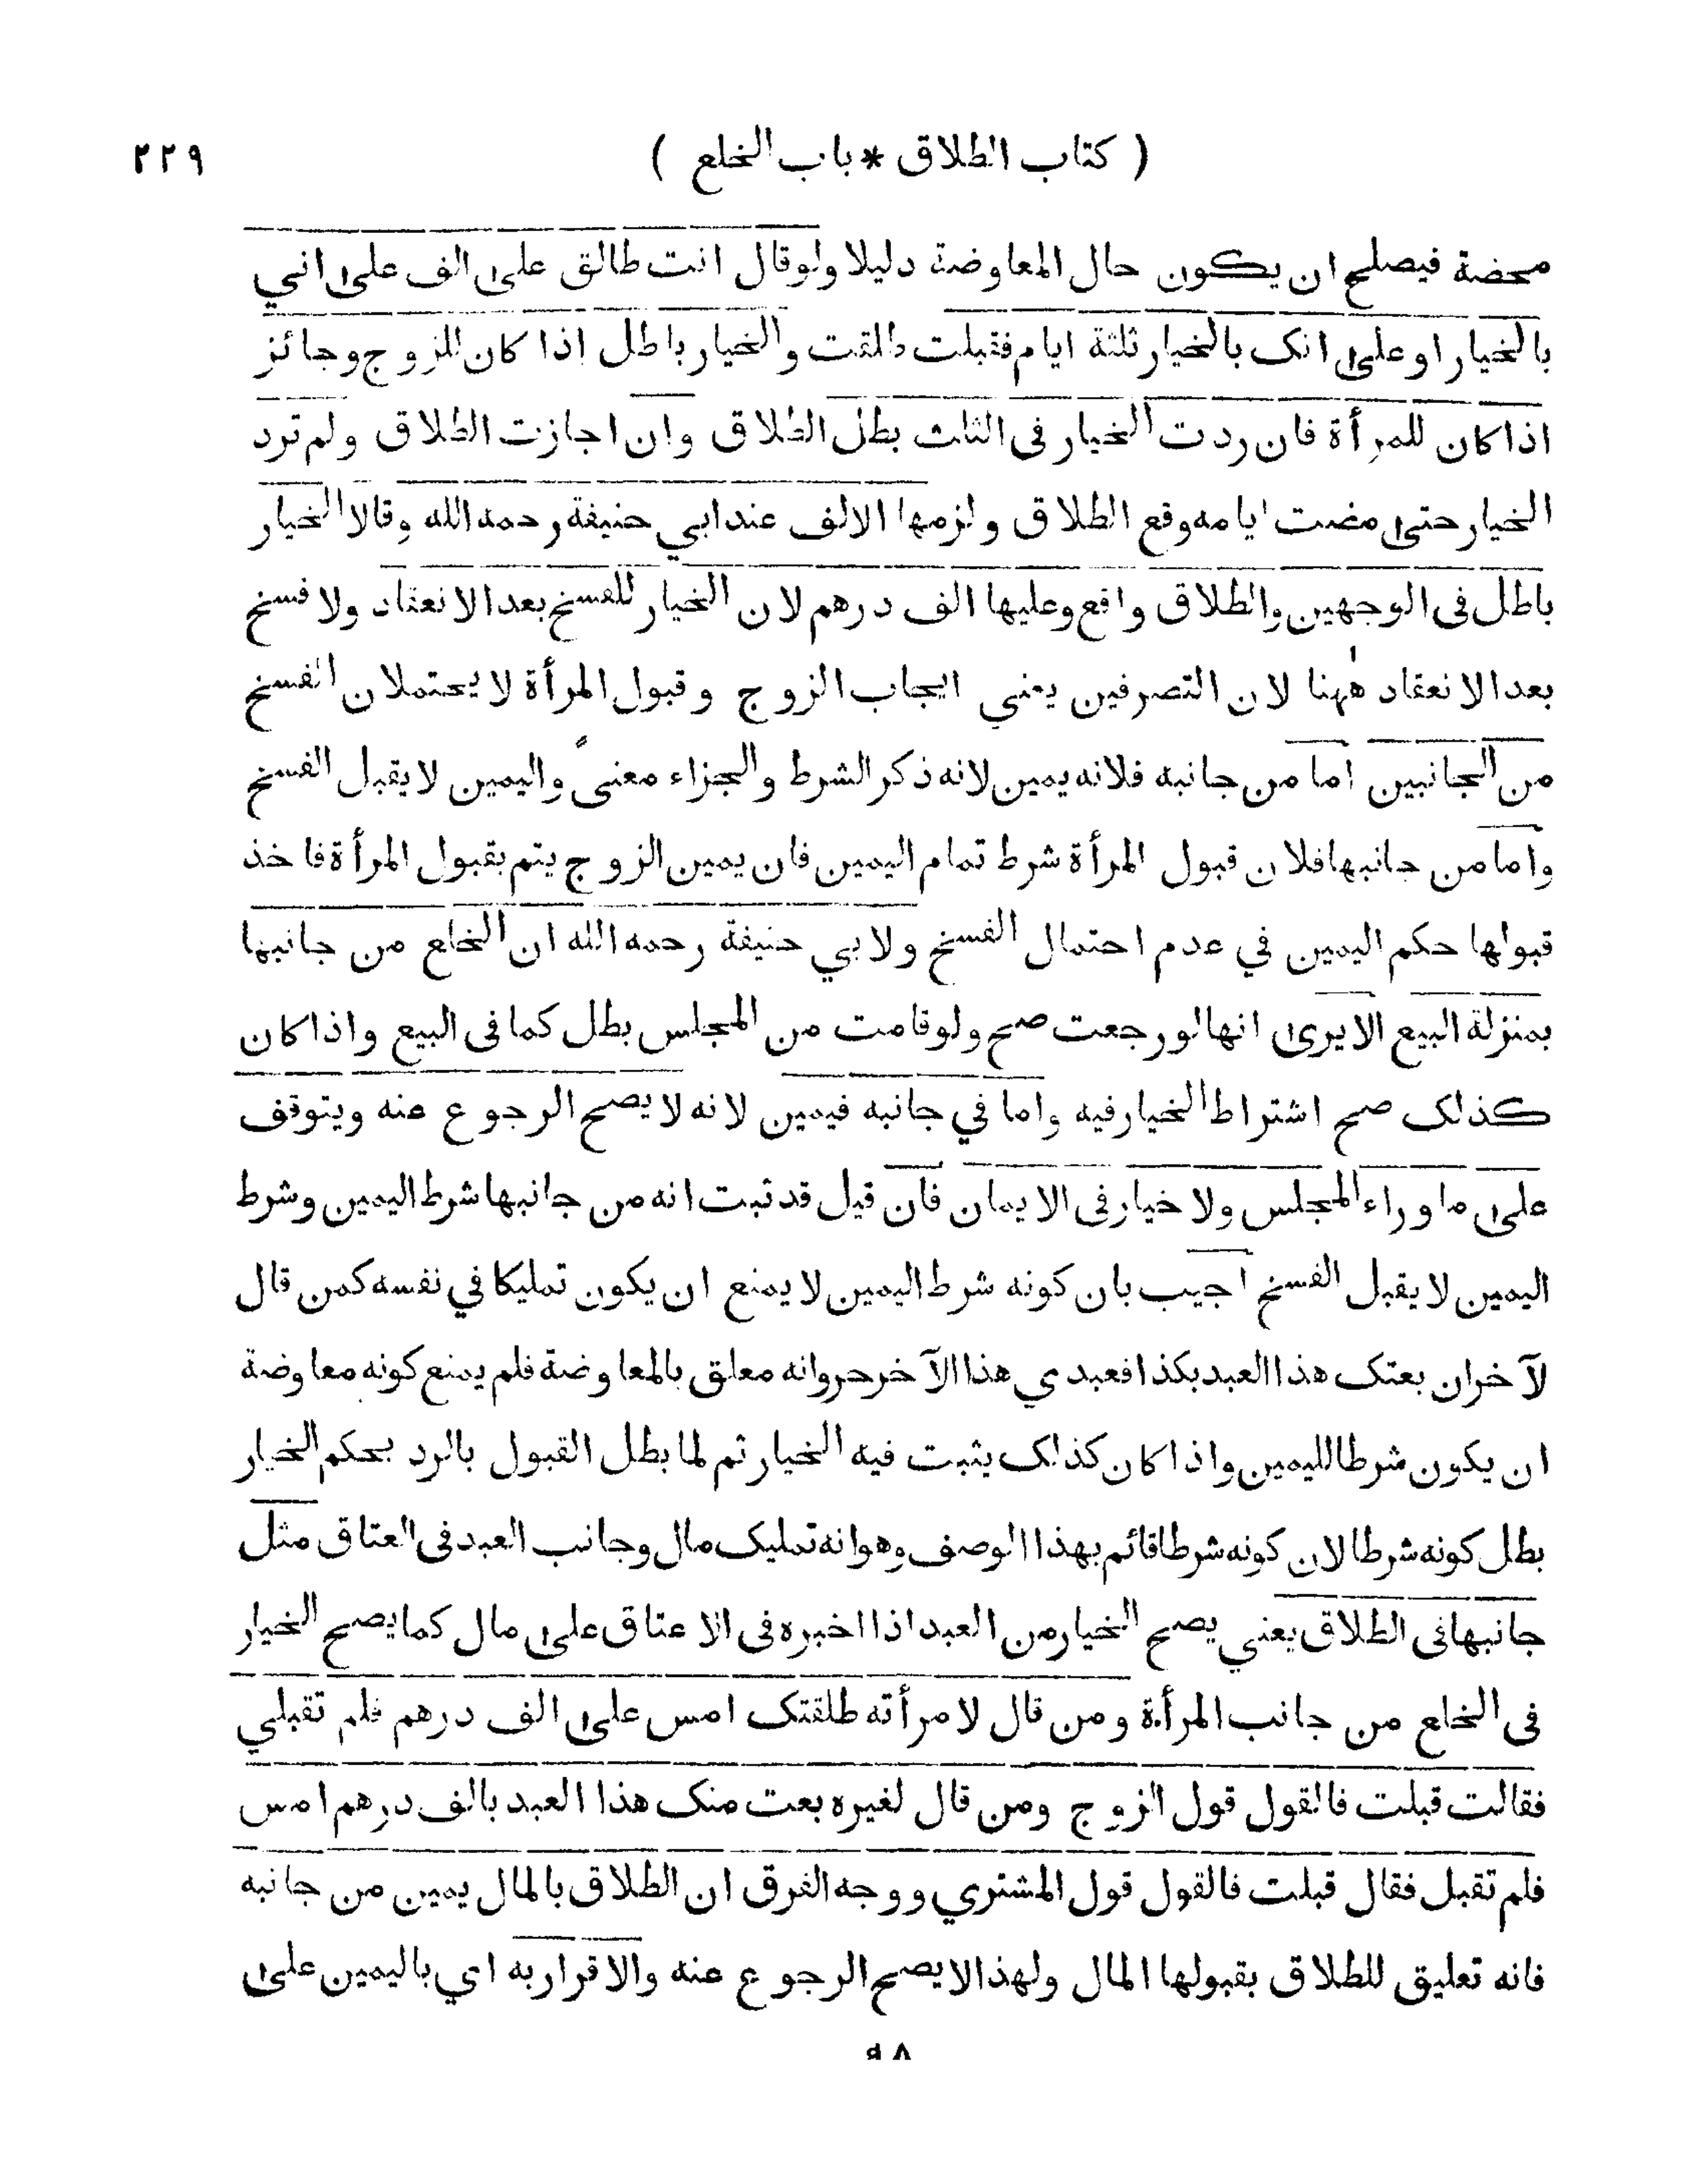 ( كتاب الطلاق * باب الخلع )
٢٢٩
محضة فيصلح ان يكون حال المعاوضة دليلا ولوقال انت طالق على الف على اني
بالخيار او على انك بالخيار ثلثة ايام فقبلت طلقت والخيار باطل اذا كان للزوج وجائز
اذا كان للمرأة فان ردت الخيار فى الثلث بطل الطلاق وان اجازت الطلاق ولم ترد
الخيار حتى مضت ايامه وقع الطلاق ولزمها الالف عند ابي حنيفة رحمه الله وقالا الخيار
باطل فى الوجهين والطلاق واقع وعليها الف درهم لان الخيار للفسخ بعد الانعقاد ولا فسخ
بعد الانعقاد ههنا لان التصرفين يعني ايجاب الزوج وقبول المرأة لا يحتملان الفسخ
من الجانبين اما من جانبه فلانه يمين لانه ذكر الشرط والجزاء معنىً واليمين لا يقبل الفسخ
واما من جانبها فلان قبول المرأة شرط تمام اليمين فان يمين الزوج يتم بقبول المرأة فاخذ
قبولها حكم اليمين في عدم احتمال الفسخ ولابي حنيفة رحمه الله ان الخلع من جانبها
بمنزلة البيع الا يرى انها لو رجعت صح ولو قامت من المجلس بطل كما فى البيع واذا كان
كذلك صح اشتراط الخيار فيه واما في جانبه فيمين لانه لا يصح الرجوع عنه ويتوقف
على ما وراء المجلس ولا خيار فى الايمان فان قيل قد ثبت انه من جانبها شرط اليمين وشرط
اليمين لا يقبل الفسخ اجيب بان كونه شرط اليمين لا يمنع ان يكون تمليكا في نفسه كمن قال
لآخر ان بعتك هذا العبد بكذا فعبدي هذا الآخر حر وانه معلق بالمعاوضة فلم يمنع كونه معاوضة
ان يكون شرطا لليمين واذا كان كذلك يثبت فيه الخيار ثم لما بطل القبول بالرد بحكم الخيار
بطل كونه شرطا لان كونه شرطا قائم بهذا الوصف وهو انه تمليك مال وجانب العبد فى العتاق مثل
جانبها فى الطلاق يعني يصح الخيار من العبد اذا اخبره فى الاعتاق على مال كما يصح الخيار
فى الخلع من جانب المرأة ومن قال لامرأته طلقتك امس على الف درهم فلم تقبلي
فقالت قبلت فالقول قول الزوج ومن قال لغيره بعت منك هذا العبد بالف درهم امس
فلم تقبل فقال قبلت فالقول قول المشتري ووجه الفرق ان الطلاق بالمال يمين من جانبه
فانه تعليق للطلاق بقبولها المال ولهذا لا يصح الرجوع عنه والاقرار به اي باليمين على